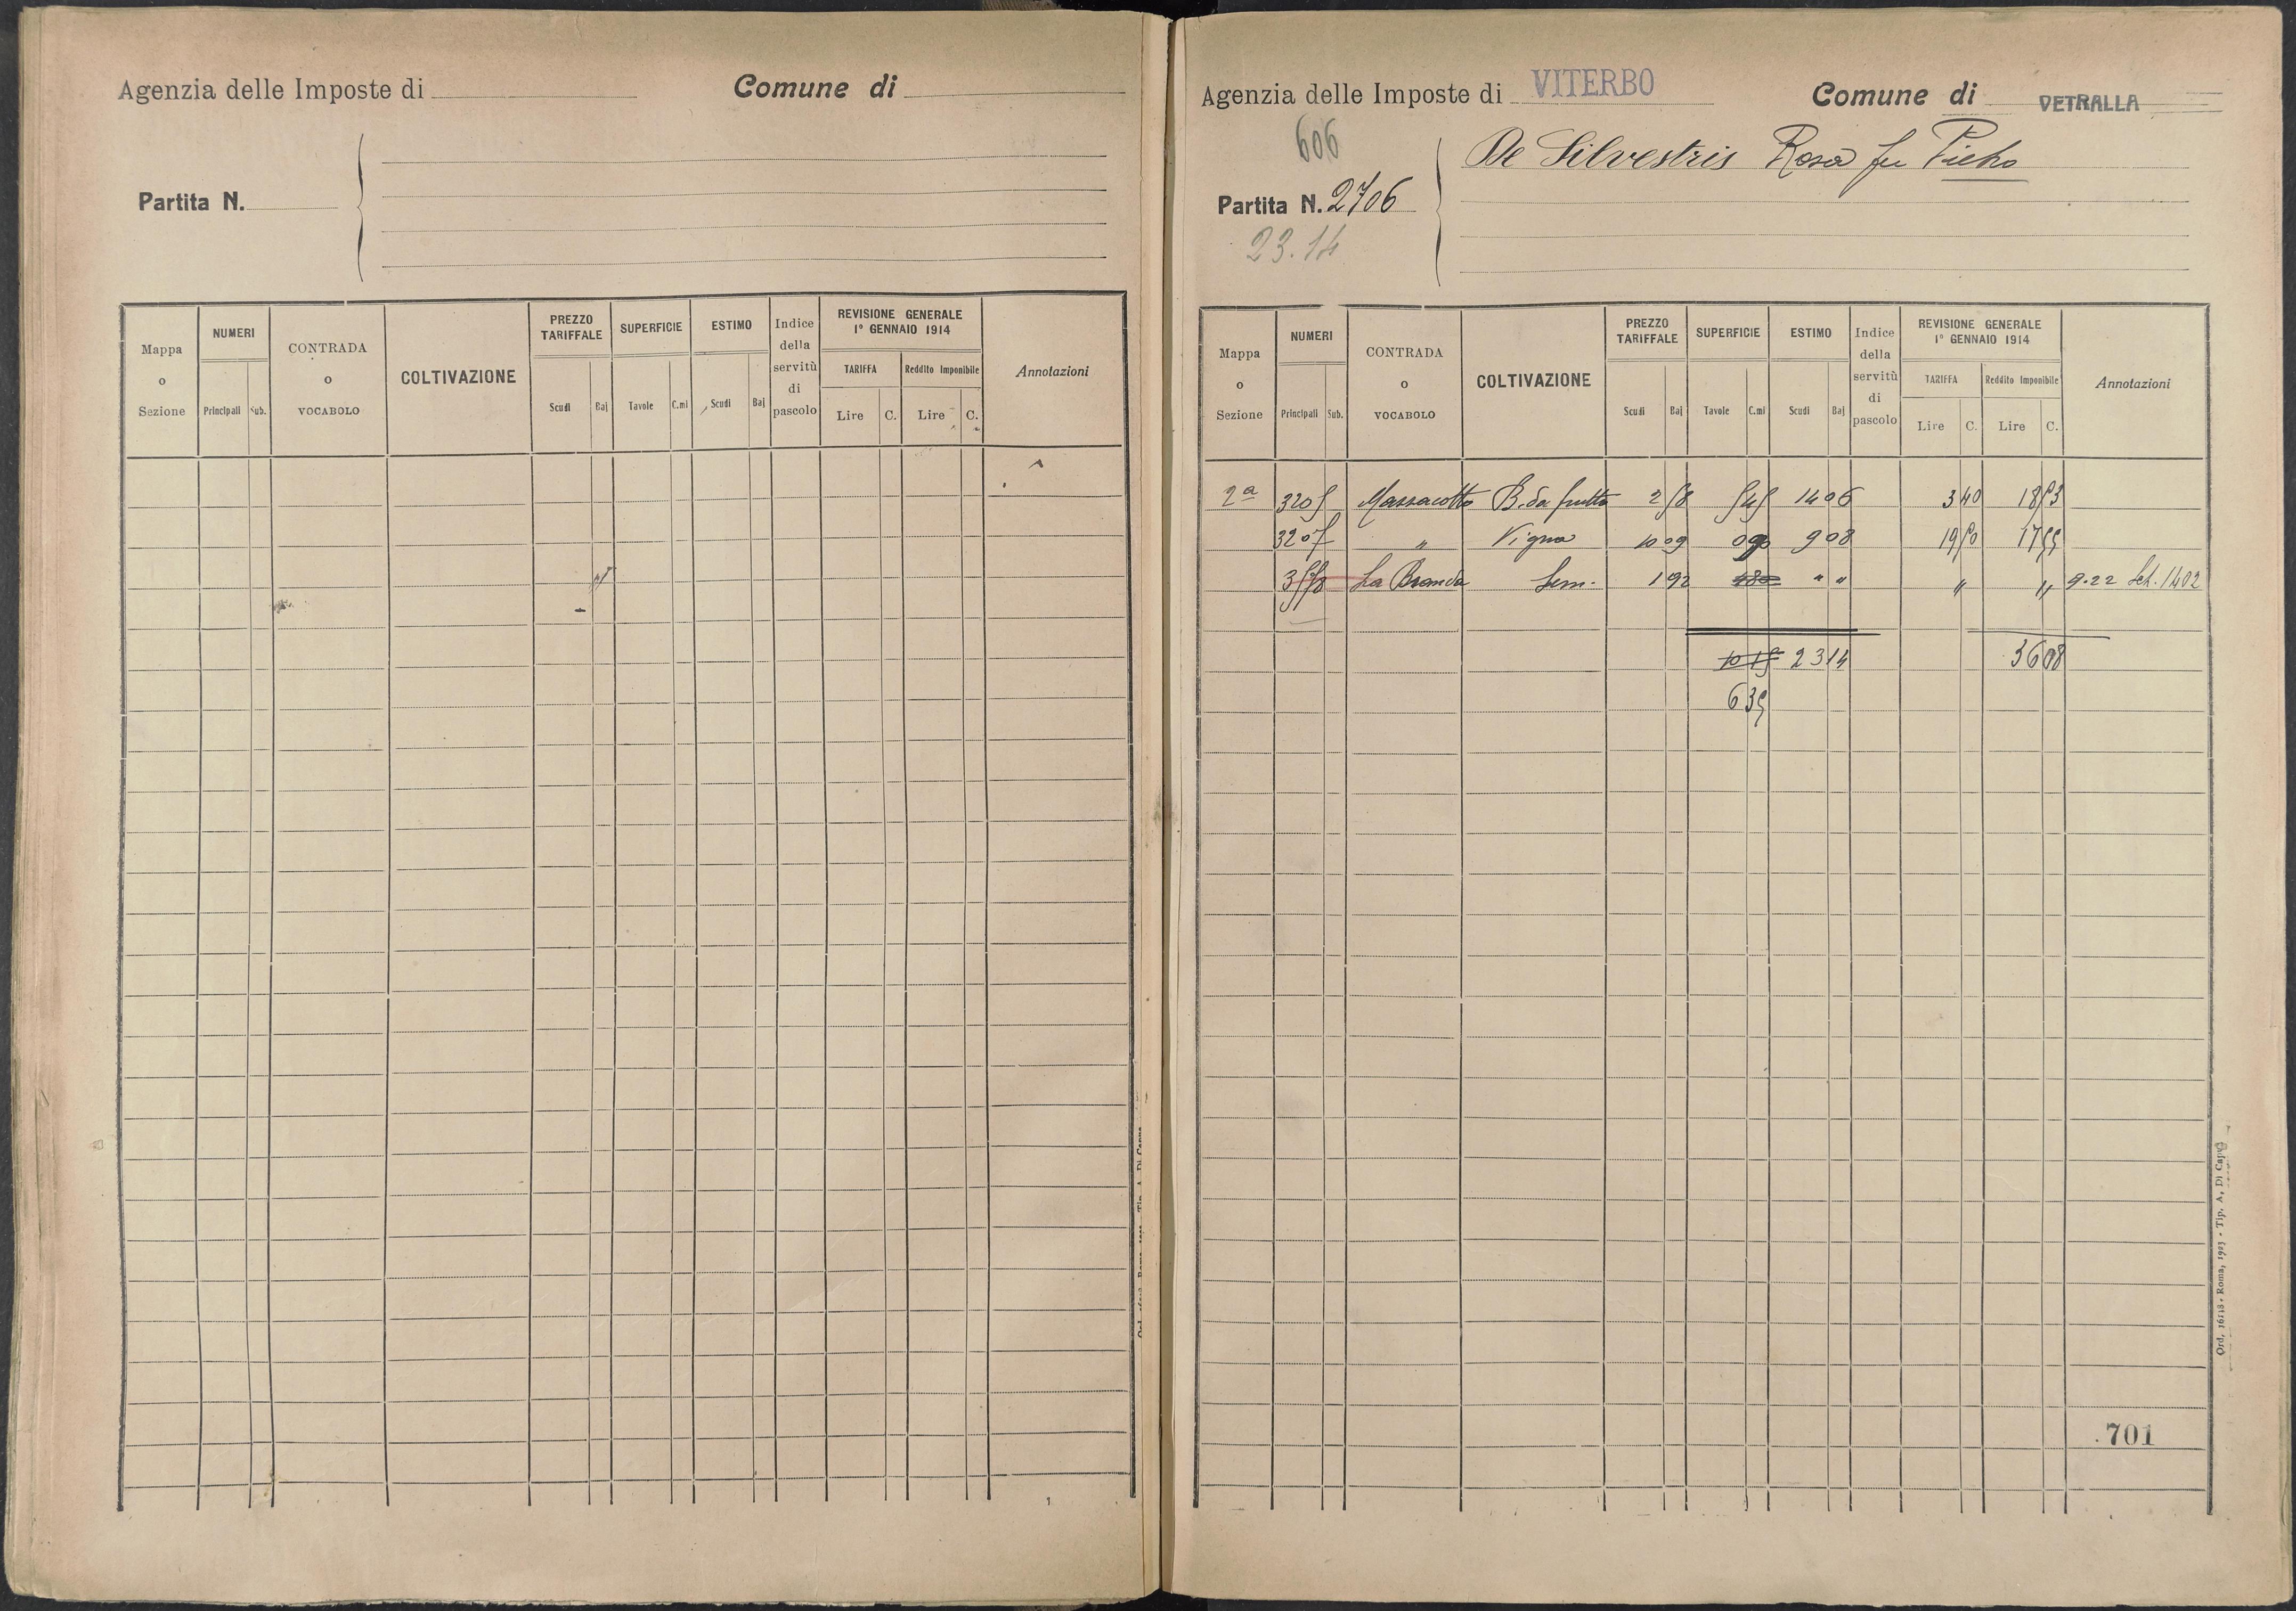 Agenzia delle Imposte di
Comune di
Partita N.
Mappa o Sezione
NUMERI
Principali
Sub.
CONTRADA o VOCABOLO
COLTIVAZIONE
PREZZO TARIFFALE
Scudi
Baj
SUPERFICIE
Tavole
C.mi
ESTIMO
Scudi
Baj
Indice della servitù di pascolo
REVISIONE GENERALE 1° GENNAIO 1914
TARIFFA
Lire C.
Reddito Imponibile
Lire C.
Annotazioni
Agenzia delle Imposte di VITERBO
Comune di VETRALLA
606
Partita N. 2706
23.14
De Silvestris Rosa fu Pietro
Mappa o Sezione
NUMERI
Principali
Sub.
CONTRADA o VOCABOLO
COLTIVAZIONE
PREZZO TARIFFALE
Scudi
Baj
SUPERFICIE
Tavole
C.mi
ESTIMO
Scudi
Baj
Indice della servitù di pascolo
REVISIONE GENERALE 1° GENNAIO 1914
TARIFFA
Lire C.
Reddito Imponibile
Lire C.
Annotazioni
2a 3205 Massacotto B. da frutto 2 58 5 45 14 06 3 40 18 53
" Vigna 10 09 90 9 08 19 50 17 55
La Branda Sem. 1 92 " " " " 9.22 Sch. 1402
10 15 23 14 36 08
6 35
701
Ord. 16118 - Roma, 1923 - Tip. A. Di Capua